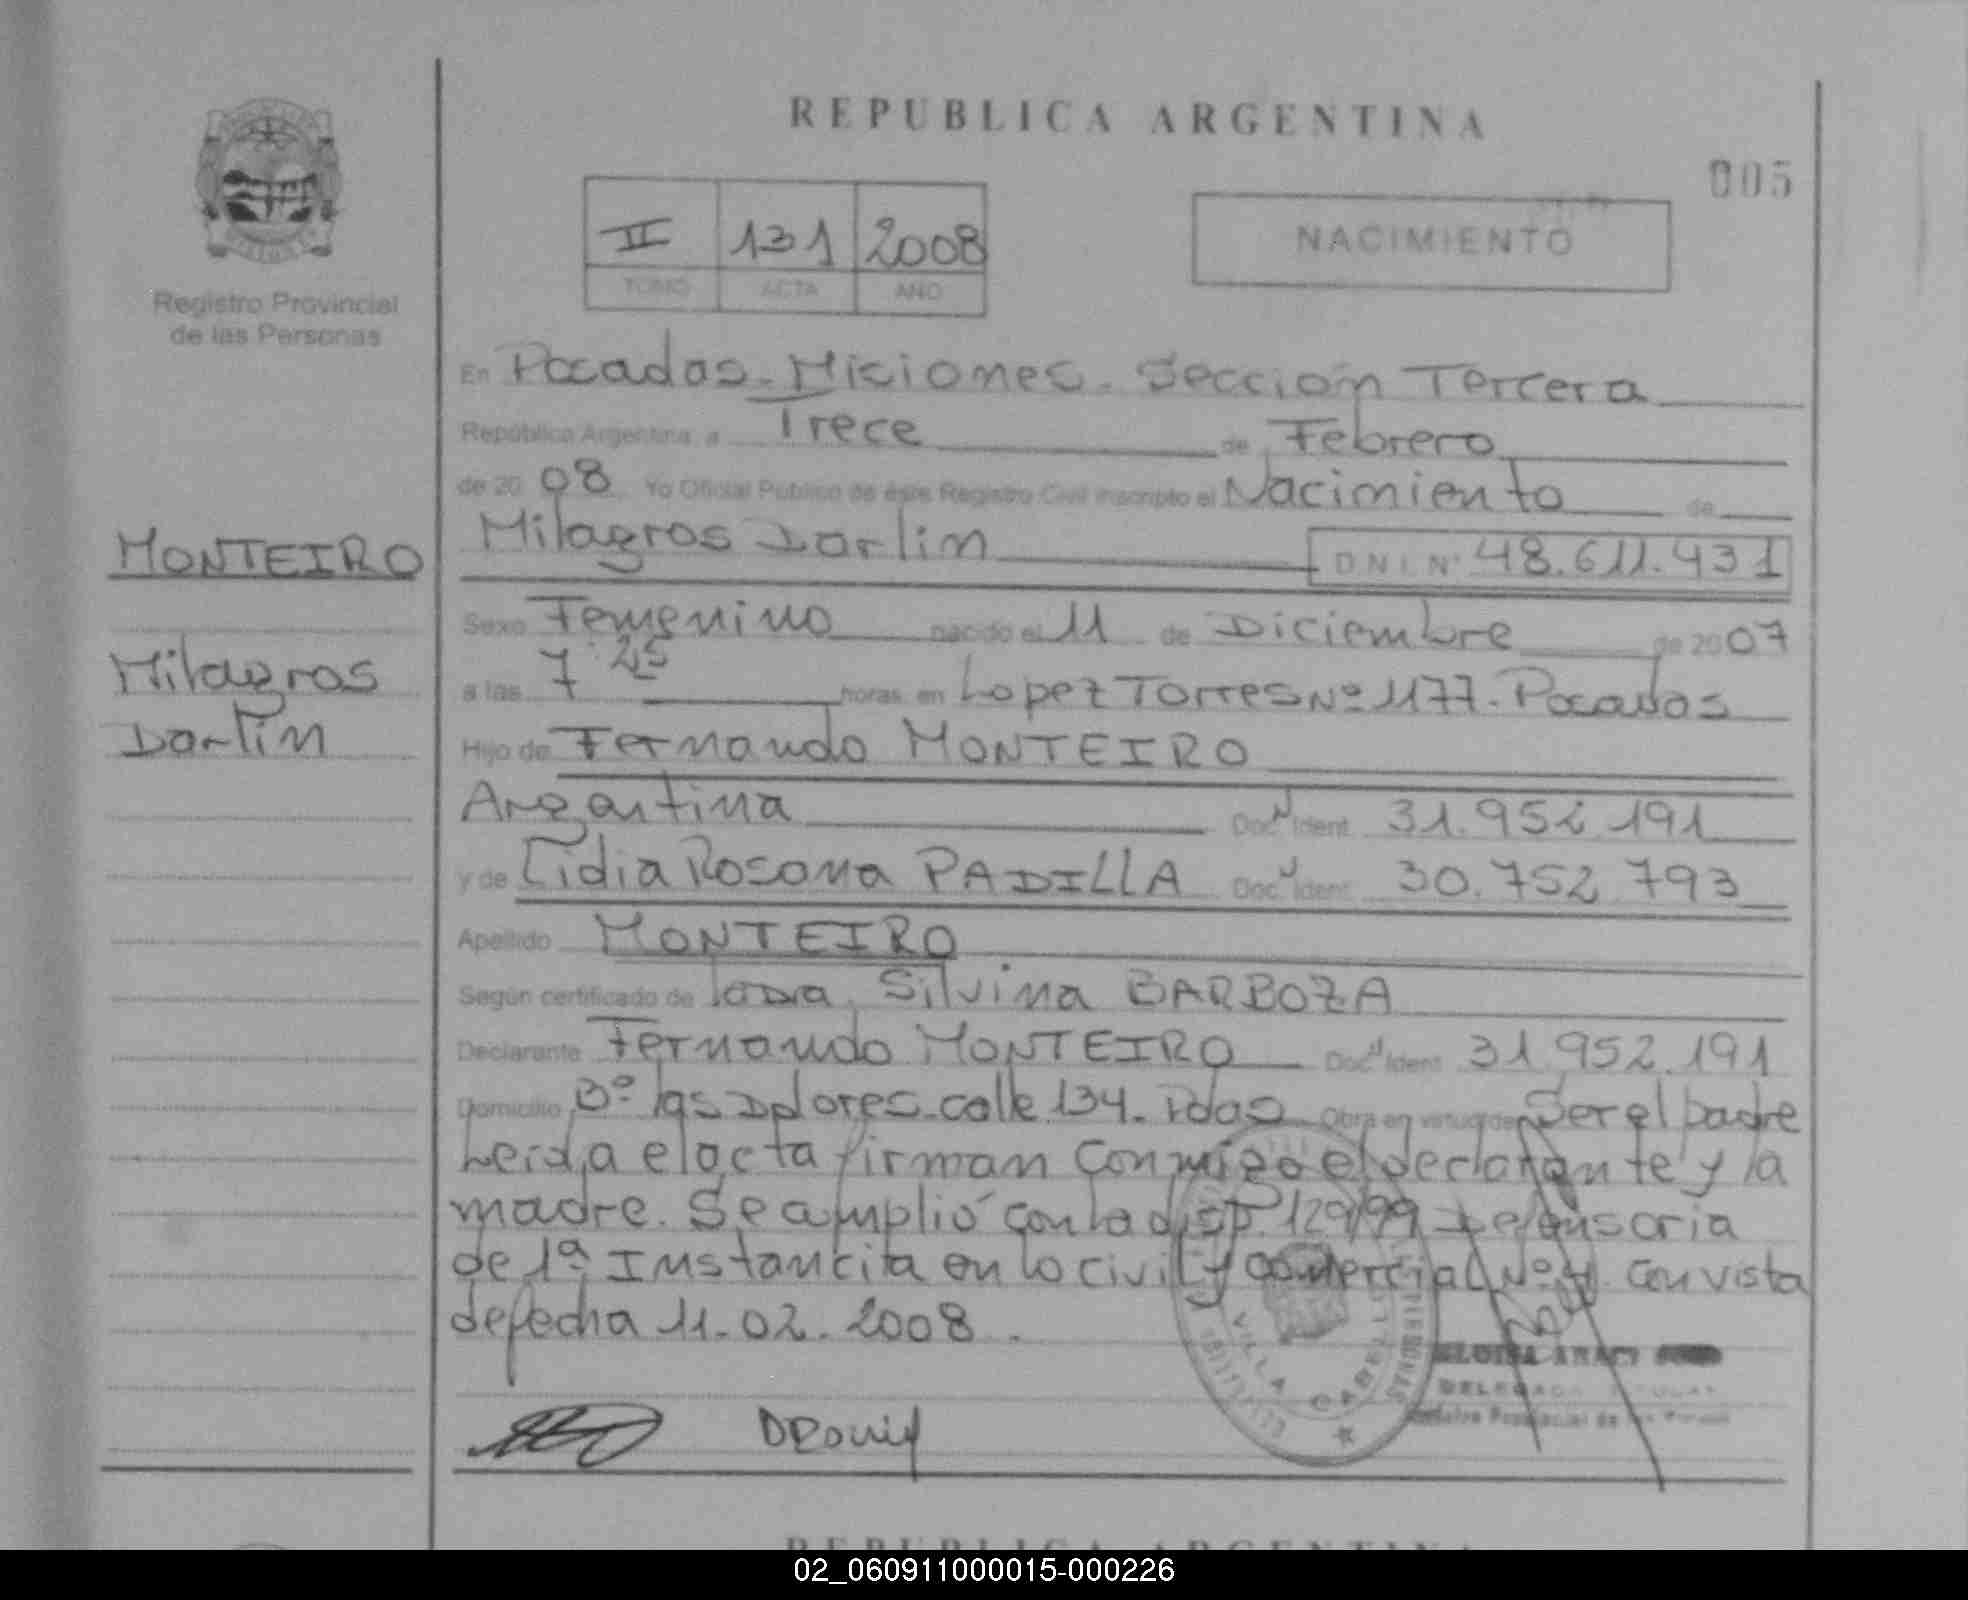 REPUBLICA ARGENTINA
005
II 131 2008
TOMO ACTA AÑO
NACIMIENTO
Registro Provincial
de las Personas
En Posadas. Misiones. Sección Tercera
República Argentina a Trece de Febrero
de 2008 Yo Oficial Publico de éste Registro Civil inscripto el Nacimiento de
MONTEIRO
Milagros Darlin D N I. N° 48.611.431
Sexo Femenino nacido el 11 de Diciembre de 2007
Milagros
Darlin
a las 7:25 horas en Lopez Torres Nº 1177. Posadas
Hijo de Fernando MONTEIRO
Argentina Doc. Ident. 31.952.191
y de Lidia Rosana PADILLA Doc. Ident. 30.752.793
Apellido MONTEIRO
Según certificado de Silvina BARBOZA
Declarante Fernando MONTEIRO Doc. Ident. 31.952.191
Domicilio Bº las Dolores calle 134. Pdas Obra en virtud de Ser el padre
Leida el acta firman conmigo el declarante y la
madre. Se amplió con la disp. 129/99 Defensoria
de 1ª Instancia en lo civil y comercial Nº 4. Con vista
de fecha 11.02.2008.
VILLA CABELLO
DELEGADA TITULAR
02_060911000015-000226